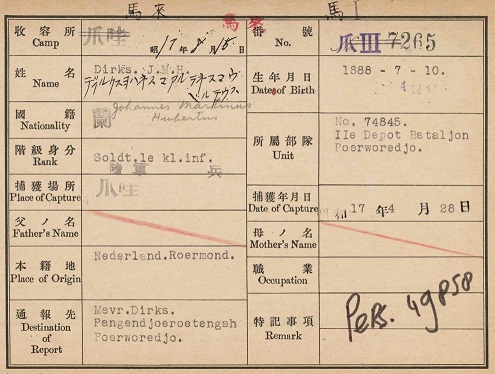 馬來
馬來
馬I
收容所
Camp
爪哇
昭17年8月15日
番號
No.
爪III 7265
姓名
Name
Dirks. J.M.H.
Johannes Markinus
Hubertus
生年月日
Date of Birth
1888 - 7 - 10.
國籍
Nationality
蘭
所屬部隊
Unit
No. 74845.
IIe Depot Bataljon
Poerworedjo.
階級身分
Rank
Soldt.1e kl.inf.
陸軍 兵
捕獲場所
Place of Capture
爪哇
捕獲年月日
Date of Capture
昭和 17年 4月 28日
父ノ名
Father's Name
母ノ名
Mother's Name
本籍地
Place of Origin
Nederland.Roermond.
職業
Occupation
通報先
Destination of Report
Mevr.Dirks.
Pangendjoeroetengah
Poerworedjo.
特記事項
Remark
Pers. 49858